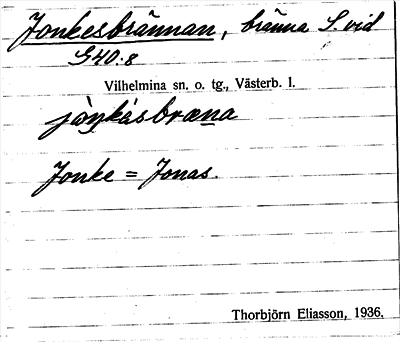 Jonkesbrännan, bränna S. vid
S40.8
Vilhelmina sn. o. tg., Västerb. l.
jåŋkåsbræna
Jonke = Jonas.
Thorbjörn Eliasson, 1936.